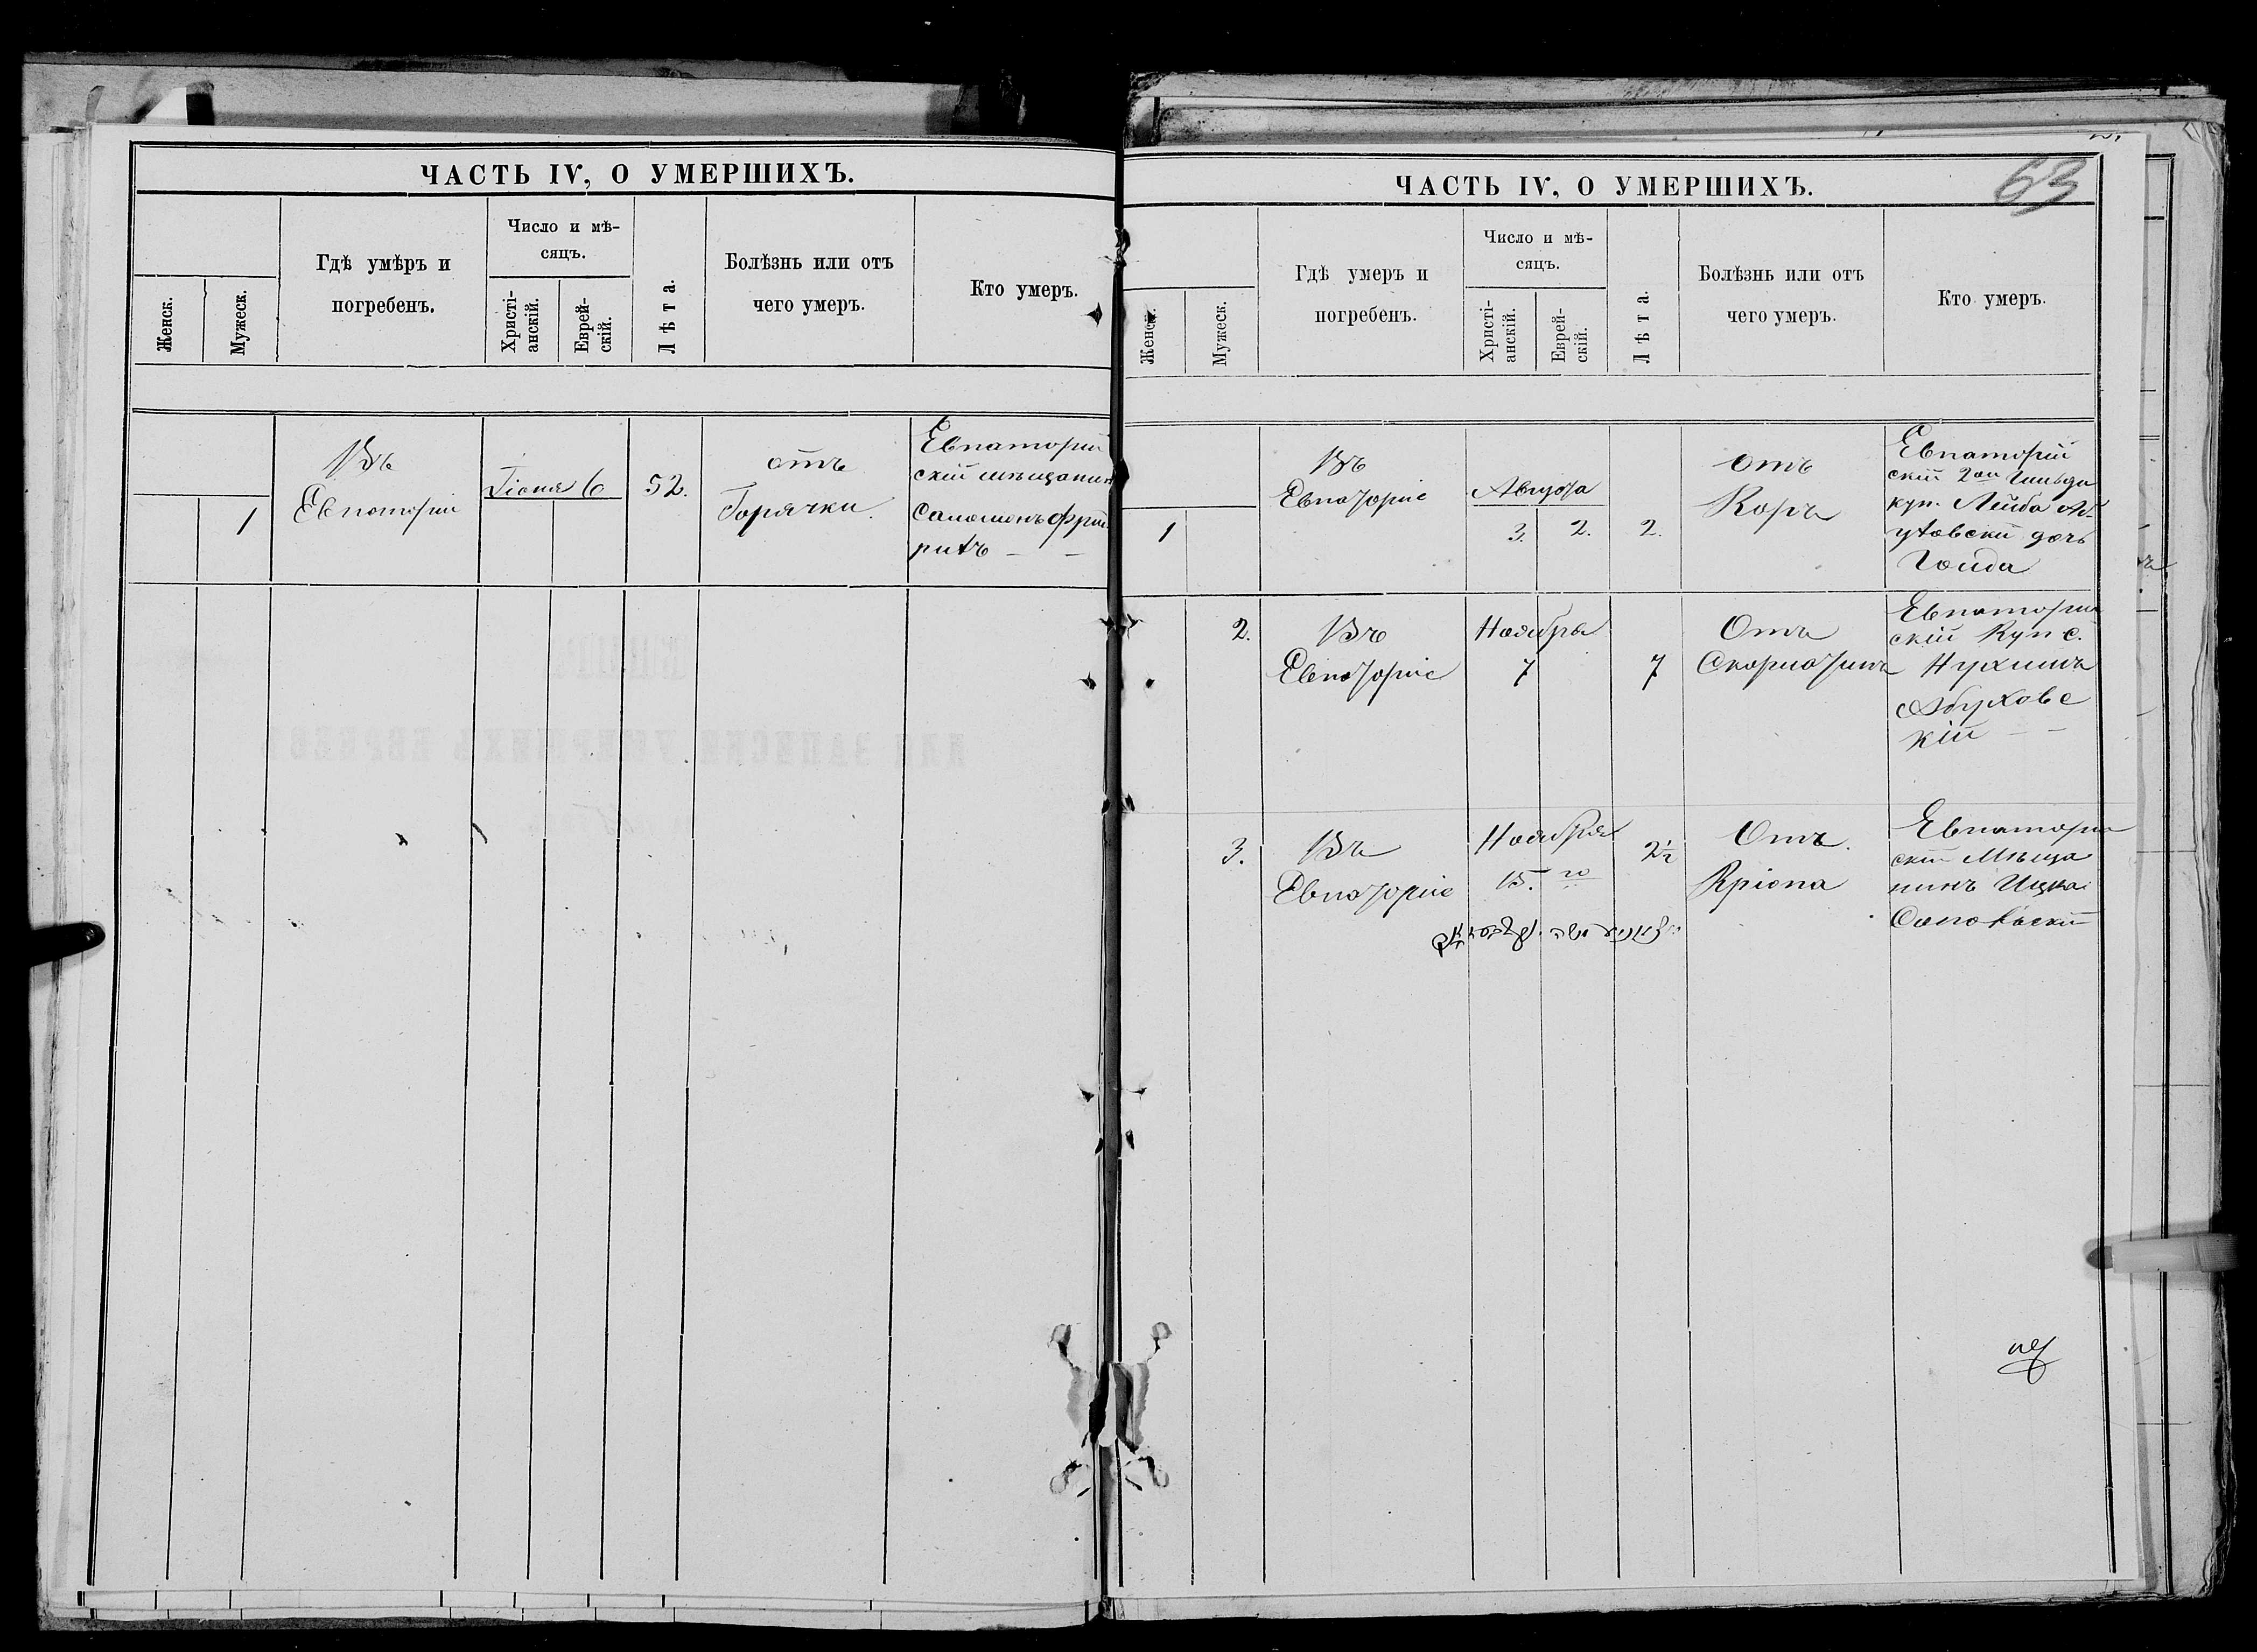 ЧАСТЬ IV, О УМЕРШИХЪ.
Женск.
Мужеск.
Гдѣ умѣръ и
погребенъ.
Число и мѣ-
сяцъ.
Христі-
анскій.
Еврей-
скій.
Лѣта.
Болѣзнь или отъ
чего умеръ.
Кто умеръ.
1
Въ
Евпаторіи
Іюня 6
52.
отъ
Горячки.
Евпаторій
скій мѣщанин
Саломонъ
ЧАСТЬ IV, О УМЕРШИХЪ.
63
Женск.
Мужеск.
Гдѣ умеръ и
погребенъ.
Число и мѣ-
сяцъ.
Христі-
анскій.
Еврей-
скій.
Лѣта.
Болѣзнь или отъ
чего умеръ.
Кто умеръ.
1
Въ
Евпаторіе
Августа
3. 2.
2.
отъ
Корь
Евпаторій
скій 2ой Гильди
куп. Лейба
дочь
Голда
2.
Въ
Евпаторіе
Ноябры
7
7
Отъ
Евпатори
скій Купе.
Нухимъ
Абухове
кій
3.
Въ
Евпаторіе
Ноября
15. го
2½
Отъ.
Кріопа
Евпатори
скій Мѣща
нинъ Ицка